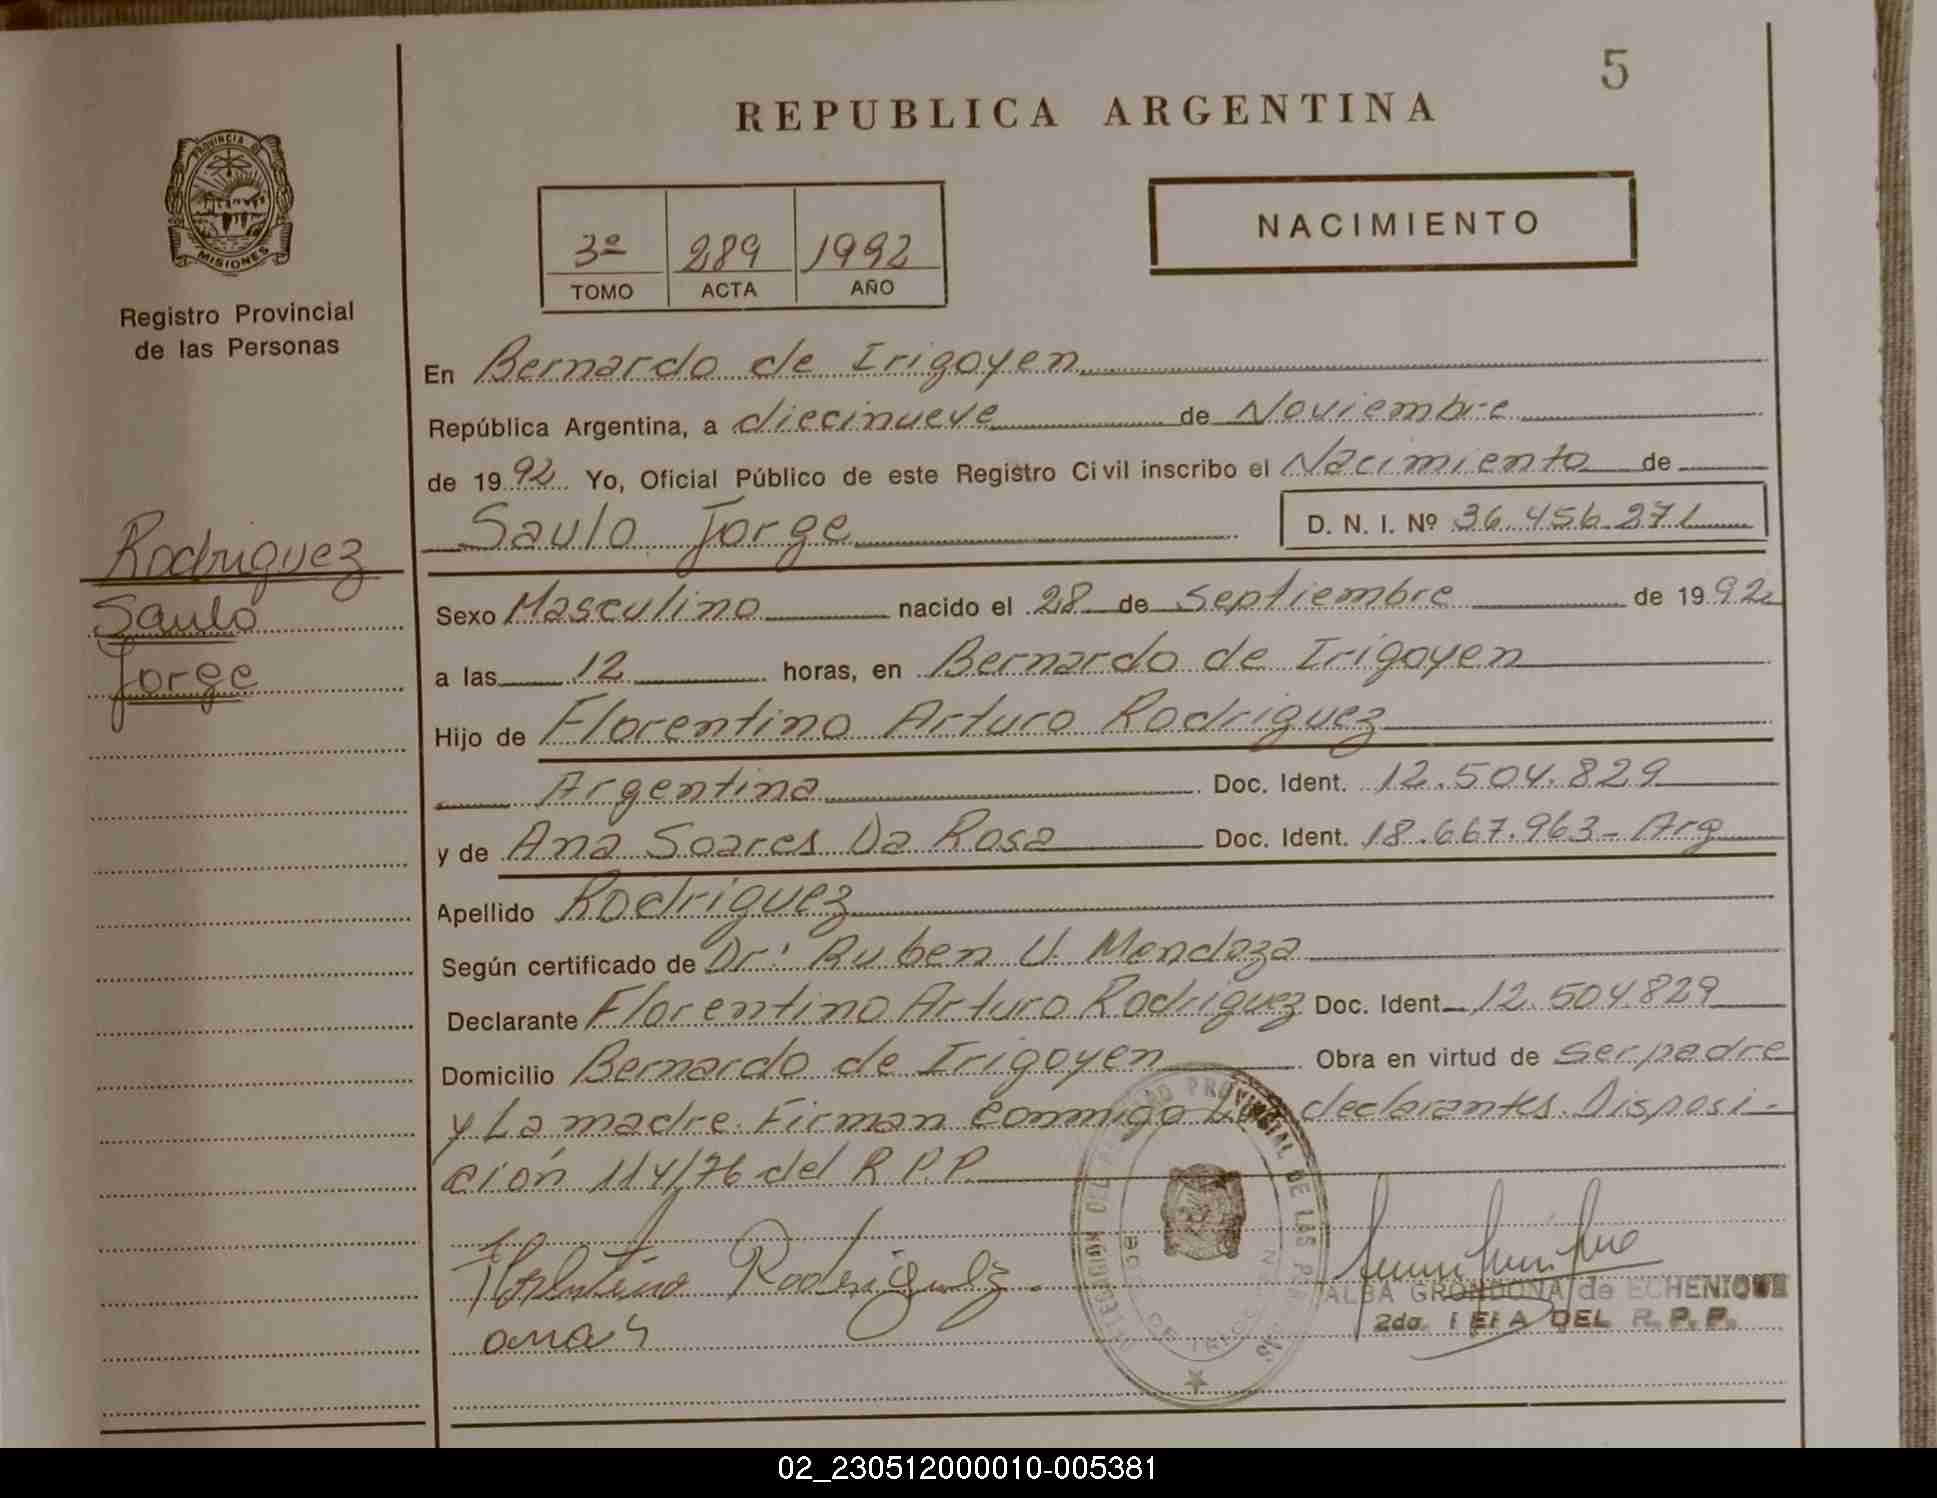 5
REPUBLICA ARGENTINA
PROVINCIA DE
MISIONES
Registro Provincial
de las Personas
3º 289 1992
TOMO ACTA AÑO
NACIMIENTO
En Bernardo de Irigoyen
República Argentina, a diecinueve de Noviembre
de 1992 Yo, Oficial Público de este Registro Civil inscribo el Nacimiento de
Saulo Jorge D. N. I. Nº 36.456.271
Rodriguez
Saulo
Jorge
Sexo Masculino nacido el 28 de Septiembre de 1992
a las 12 horas, en Bernardo de Irigoyen
Hijo de Florentino Arturo Rodriguez
Argentina Doc. Ident. 12.504.829
y de Ana Soares Da Rosa Doc. Ident. 18.667.963- Arg
Apellido Rodriguez
Según certificado de Dr: Ruben U. Mendoza
Declarante Florentino Arturo Rodriguez Doc. Ident 12.504.829
Domicilio Bernardo de Irigoyen Obra en virtud de ser padre
y La madre. Firman conmigo Los declarantes. Disposi-
ción 114/76 del R.P.P.
Florentino Rodriguez.
ana S
PROVINCIAL DE LAS
ALBA GRONDONA de ECHENIQUE
2da. JEFA DEL R. P. P.
02_230512000010-005381